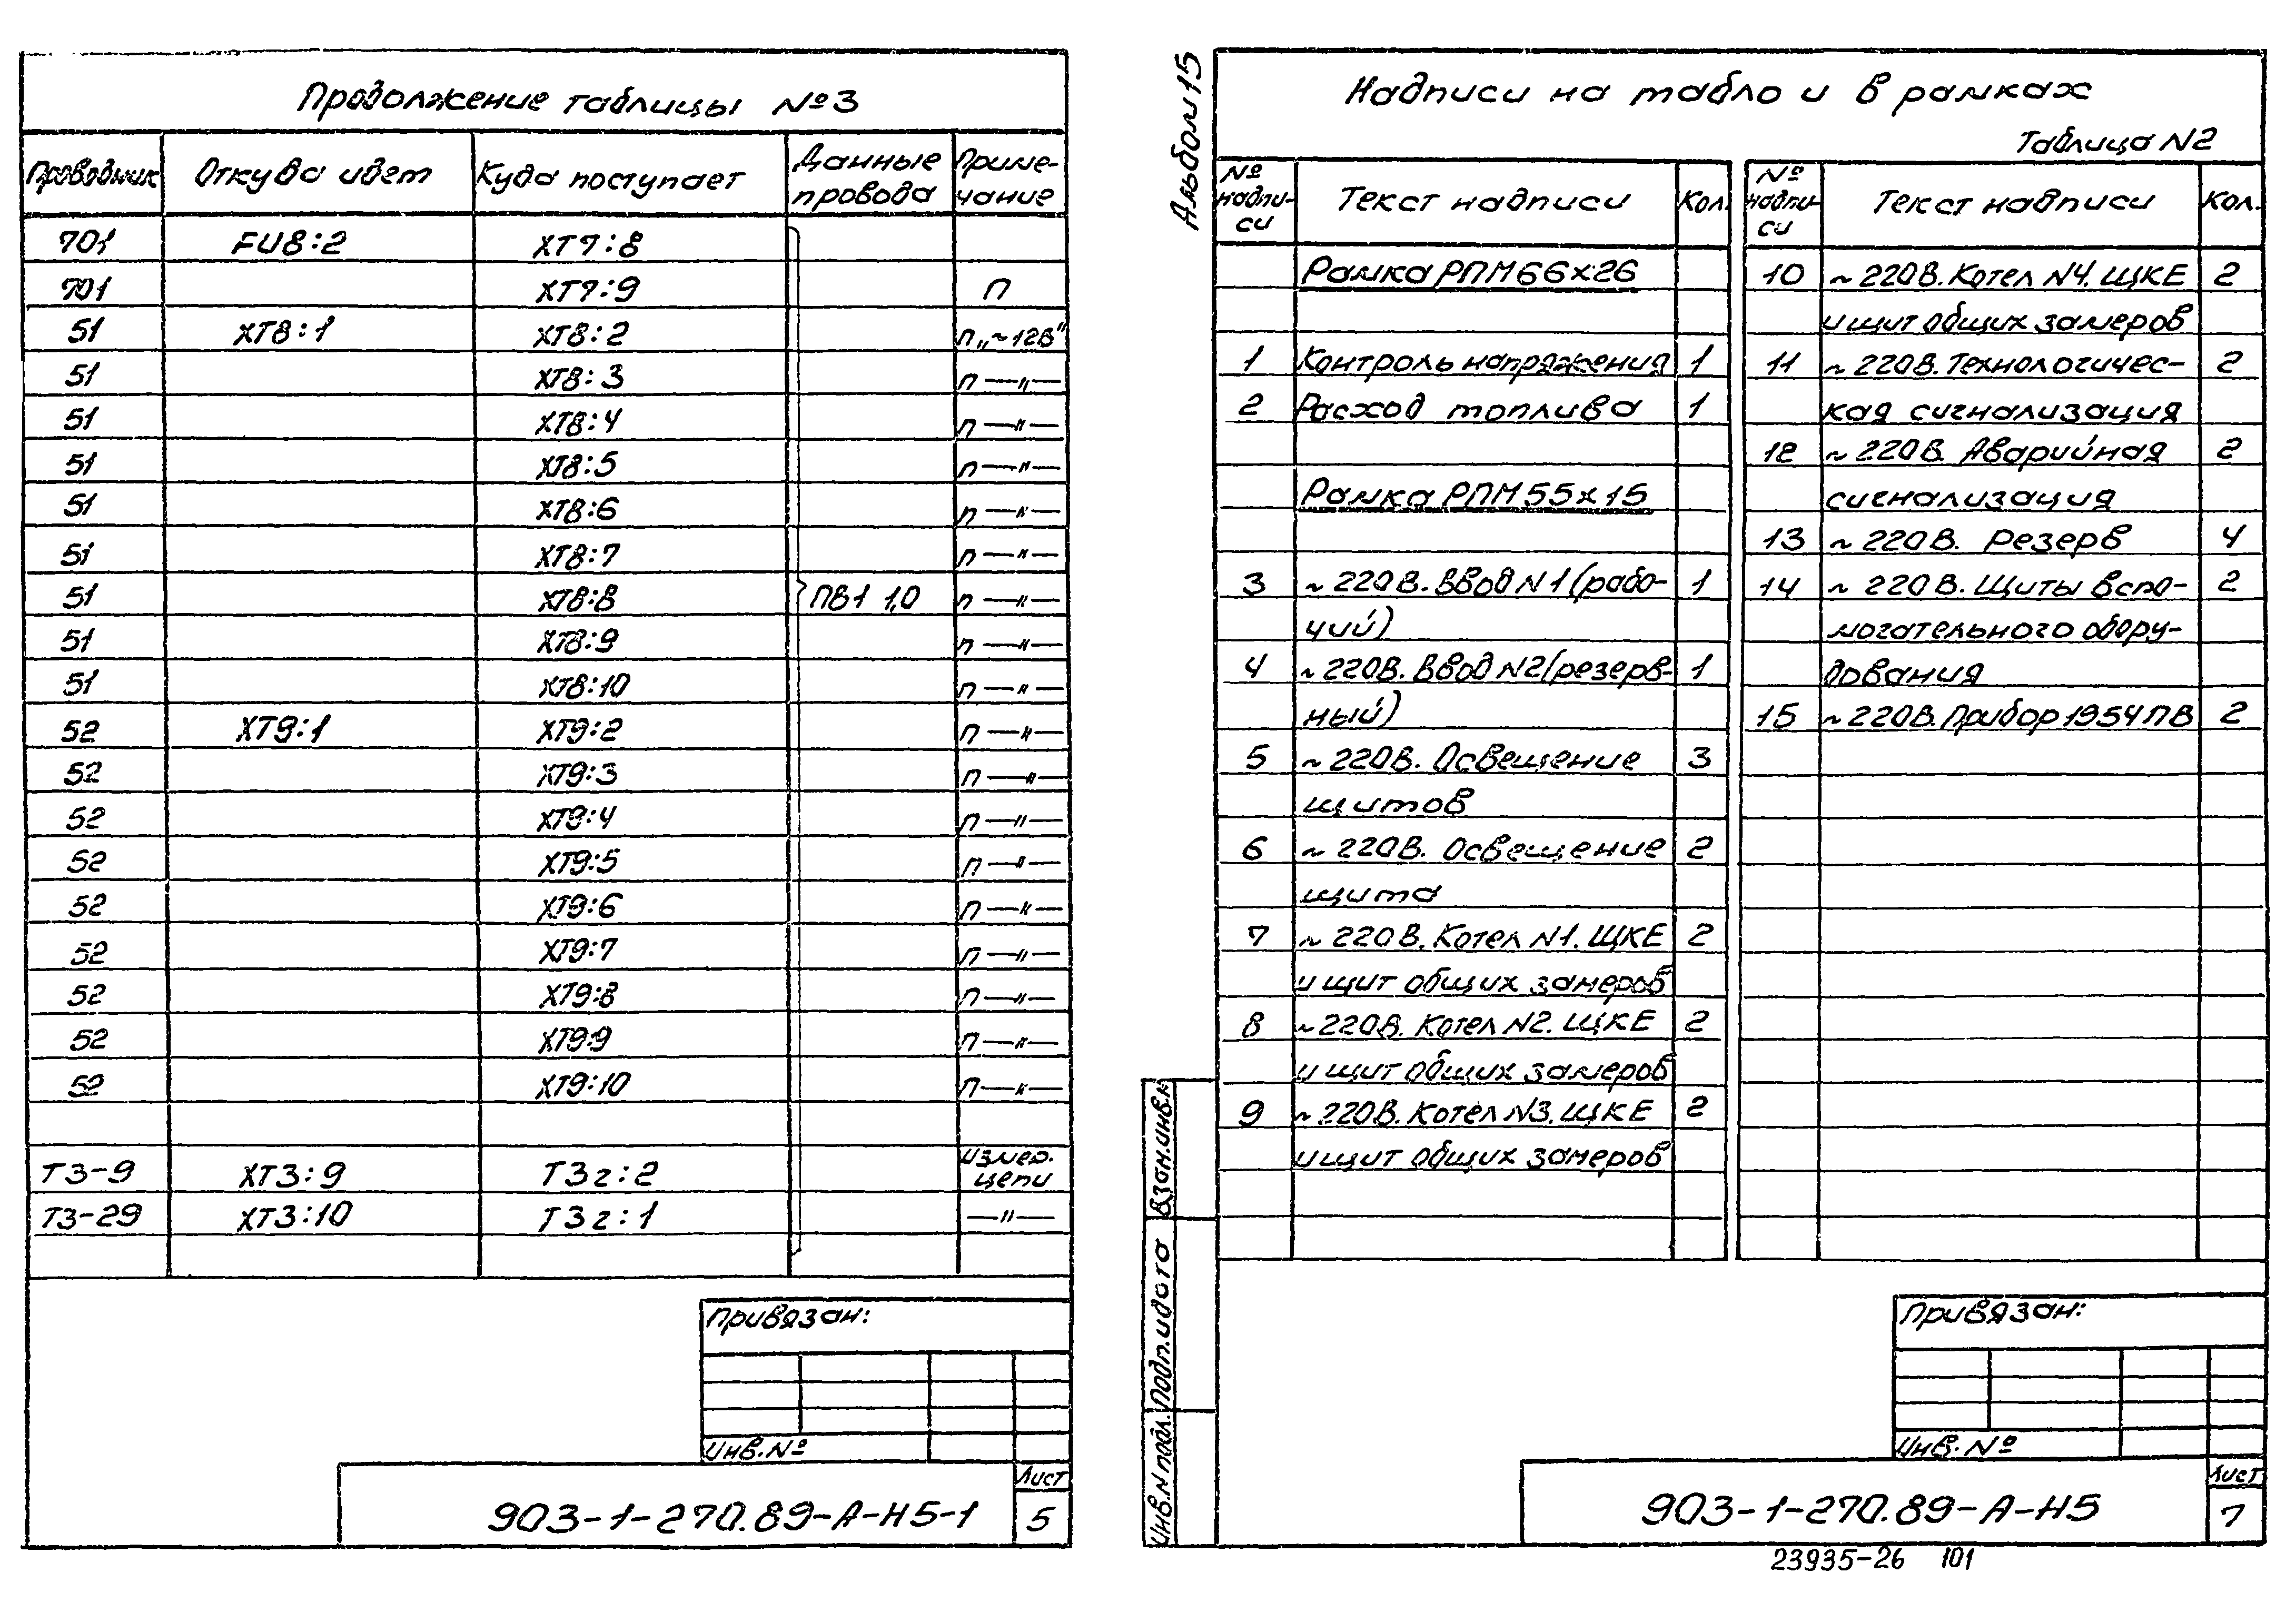 Продолжение таблицы №3
Проводник Откуда идет Куда поступает Данные провода Приме-чание
701 FU8:2 XT7:8
701 XT7:9 П
51 XT8:1 XT8:2 П „~12В"
51 XT8:3 П —„—
51 XT8:4 П —"—
51 XT8:5 П —"—
51 XT8:6 П —"—
51 XT8:7 П —"—
51 XT8:8 ПВ1 1,0 П —"—
51 XT8:9 П —"—
51 XT8:10 П —"—
52 XT9:1 XT9:2 П —"—
52 XT9:3 П —"—
52 XT9:4 П —"—
52 XT9:5 П —"—
52 XT9:6 П —"—
52 XT9:7 П —"—
52 XT9:8 П —"—
52 XT9:9 П —"—
52 XT9:10 П —"—
Т3-9 XT3:9 Т3г:2 Измер. цепи
Т3-29 XT3:10 Т3г:1 —"—
Привязан:
Инв.№
903-1-270.89-А-Н5-1
Лист
5
Альбом 15
Надписи на табло и в рамках
Таблица N2
№ надпи-си Текст надписи Кол.
Рамка РПМ 66х26
1 Контроль напряжения 1
2 Расход топлива 1
Рамка РПМ 55х15
3 ~ 220В. Ввод N1 (рабо- 1
чий)
4 ~ 220В. Ввод N2 (резерв- 1
ный)
5 ~ 220В. Освещение 3
щитов
6 ~ 220В. Освещение 2
щита
7 ~ 220В. Котел N1. ЩКЕ 2
и щит общих замеров
8 ~ 220В. Котел N2. ЩКЕ 2
и щит общих замеров
9 ~ 220В. Котел N3. ЩКЕ 2
и щит общих замеров
№ надпи-си Текст надписи Кол.
10 ~ 220В. Котел N4. ЩКЕ 2
и щит общих замеров
11 ~ 220В. Технологичес- 2
кая сигнализация
12 ~ 220В. Аварийная 2
сигнализация
13 ~ 220В. Резерв 4
14 ~ 220В. Щиты вспо- 2
могательного обору-
дования
15 ~ 220В. Прибор 1954ПВ 2
Взам.инв.н
Подп. и дата
Инв.N подл.
Привязан:
Инв.№
903-1-270.89-А-Н5
Лист
7
23935-26 101